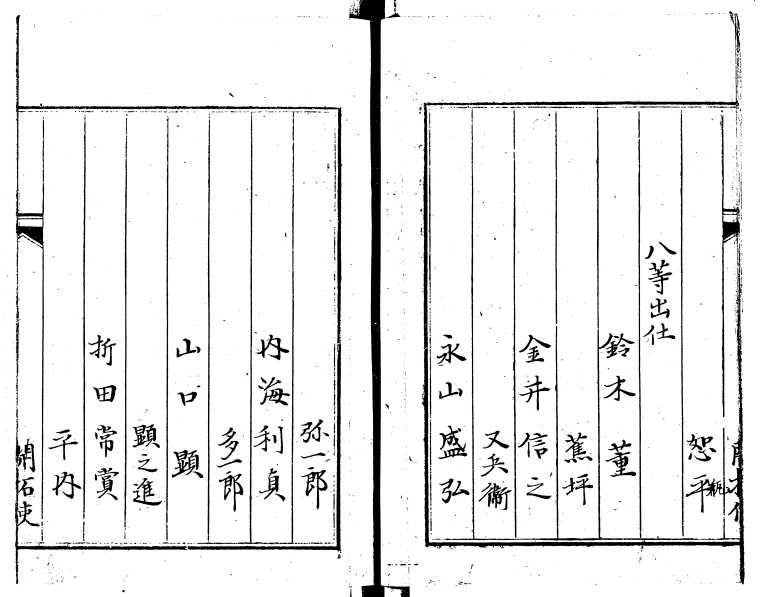 恕平
八等出仕
鈴木 董
蕉坪
金井信之
又兵衛
永山盛弘
弥一郎
内海利貞
多一郎
山口 顕
顕之進
折田常賞
平内
開拓使